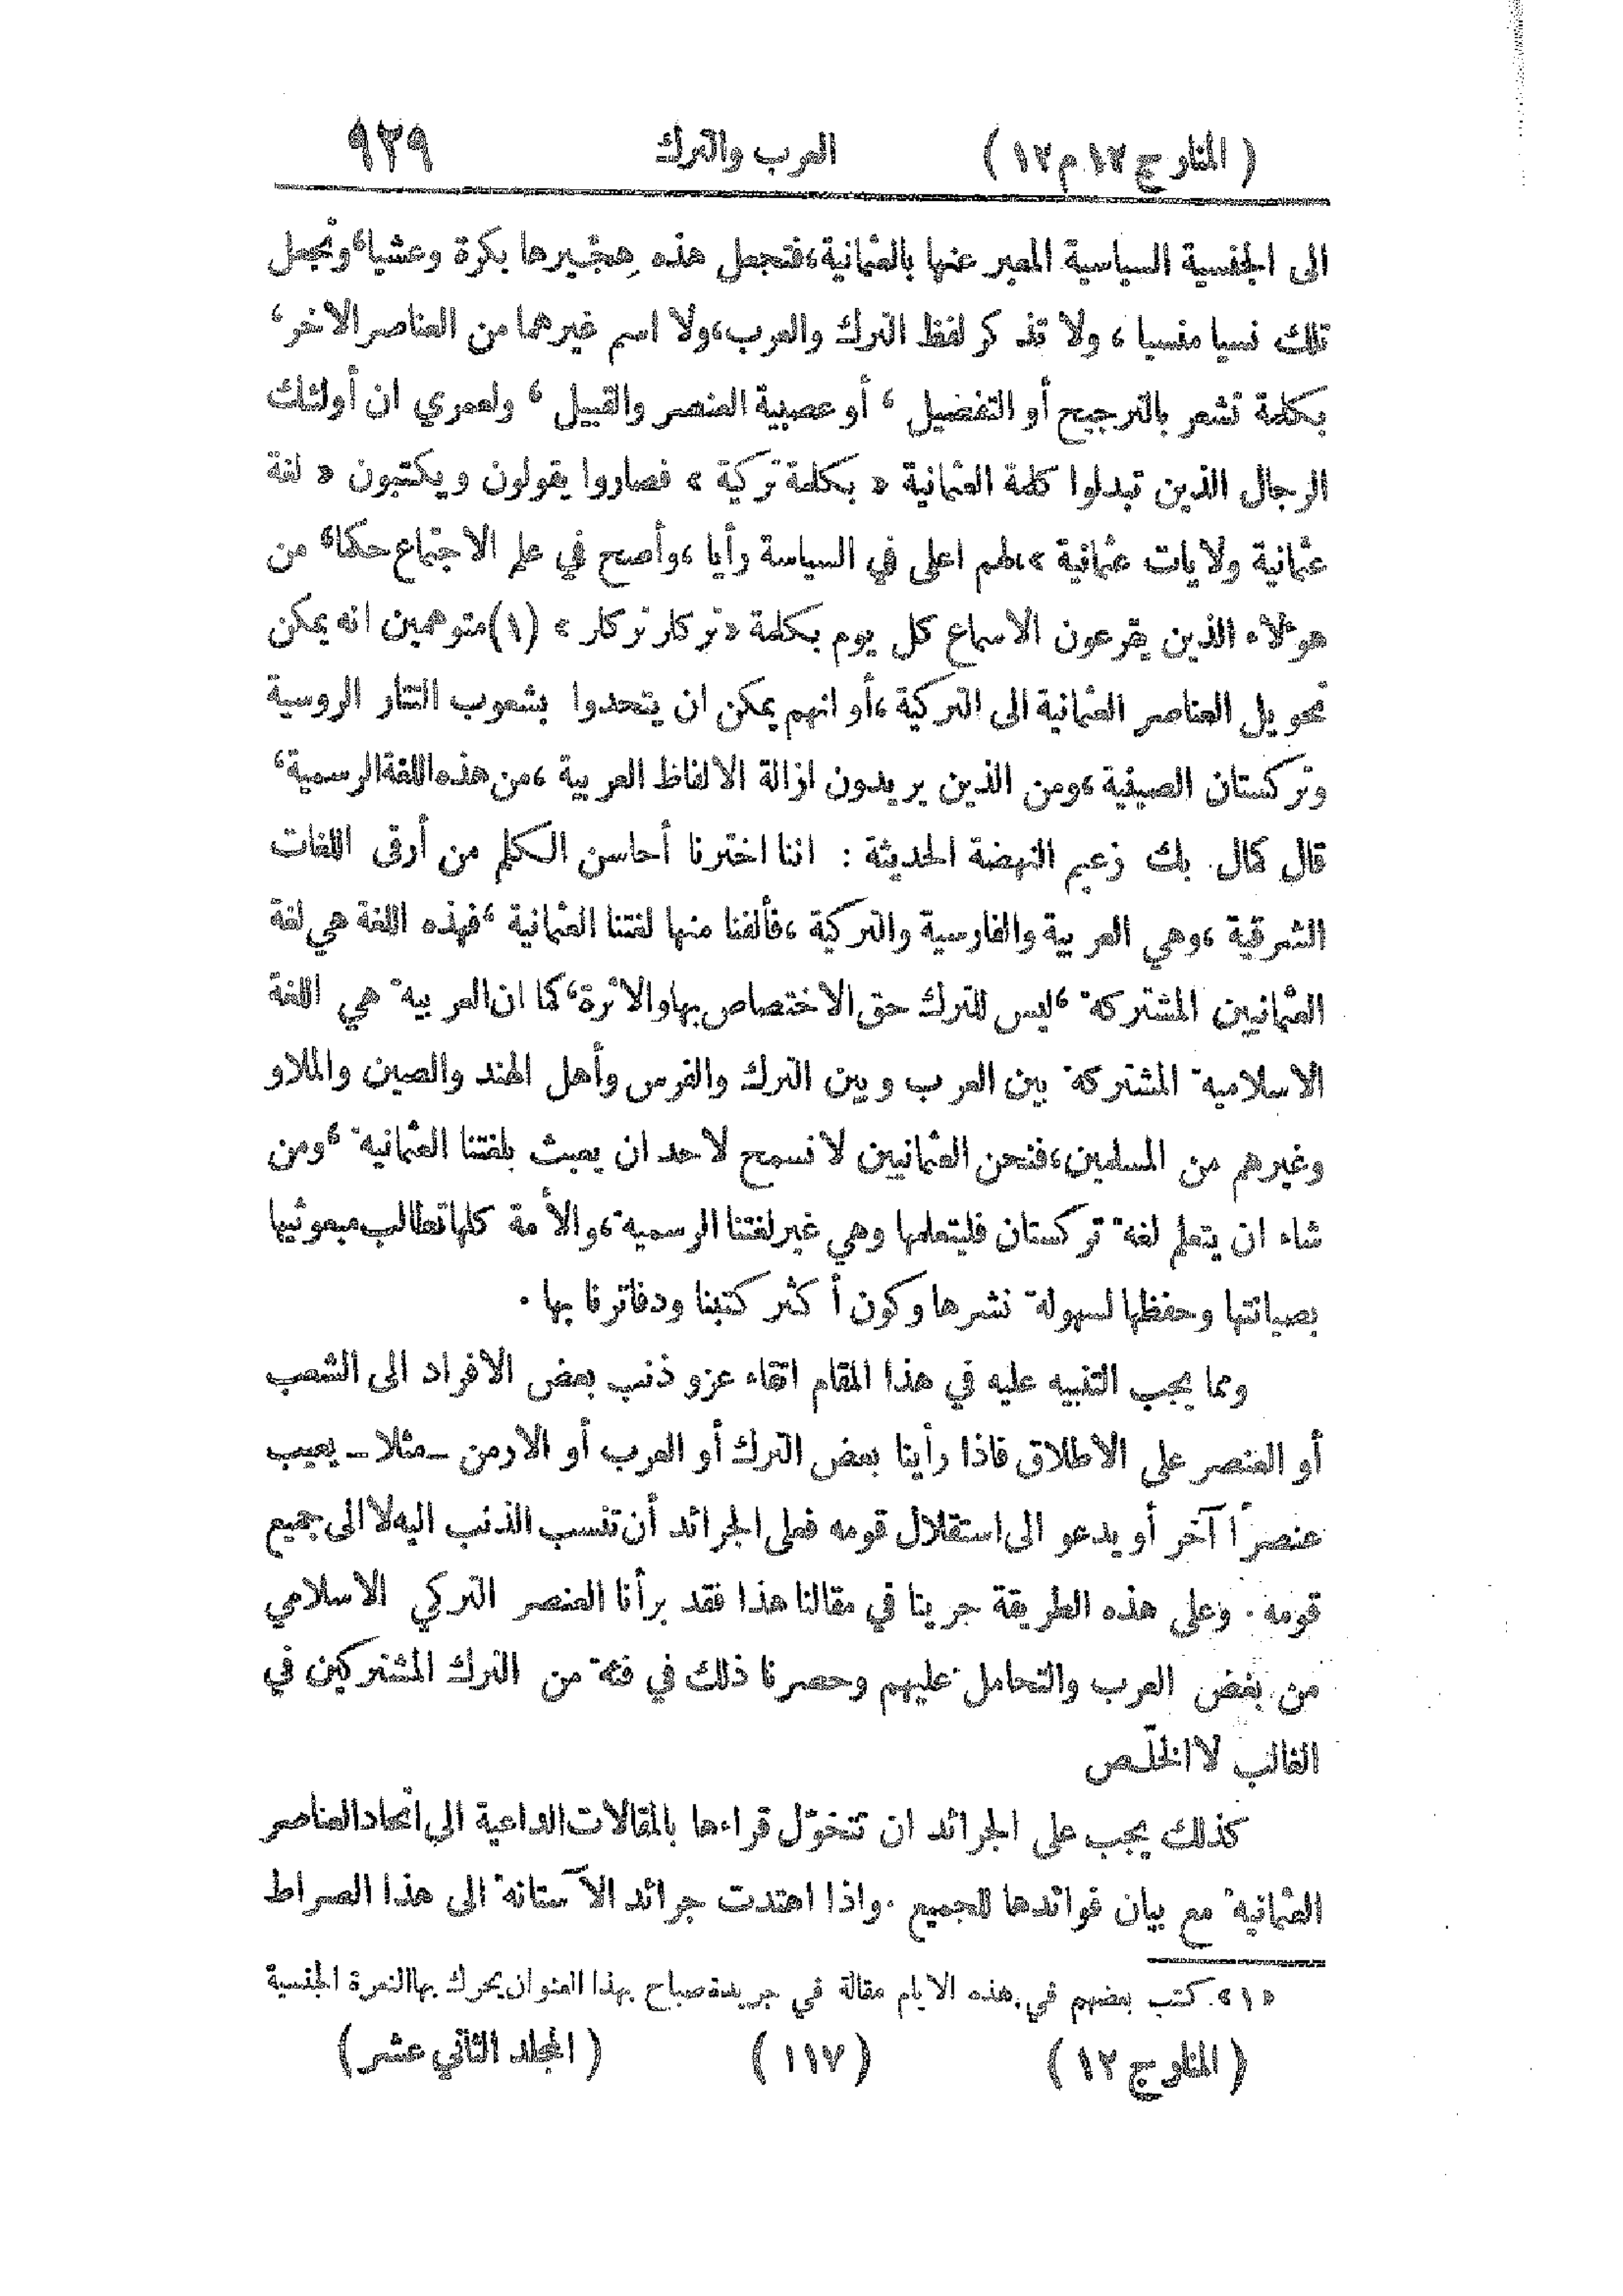 ( المنار ج ١٢ م ١٢ ) العرب والترك ٩٢٩
الى الجنسية السياسية المعبر عنها بالعثمانية ، فتجعل هذه هِجّيرها بكرة وعشيا ، وتجعل
تلك نسيا منسيا ، ولا تذكر لفظ الترك والعرب ، ولا اسم غيرهما من العناصر الاخر ،
بكلمة تشعر بالترجيح أو التفضيل ، أو عصبية العنصر والقبيل ، ولعمري ان أولئك
الرجال الذين تبدلوا كلمة العثمانية « بكلمة تركية » فصاروا يقولون ويكتبون « لغة
عثمانية ولايات عثمانية » ، لهم اعلى في السياسة رأيا ، وأصح في علم الاجتماع حكما ، من
هؤلاء الذين يقرعون الاسماع كل يوم بكلمة « تركلر تركلر » (١) متوهمين انه يمكن
تحويل العناصر العثمانية الى التركية ، أو انهم يمكن ان يتحدوا بشعوب التتار الروسية
وتركستان الصينية ، ومن الذين يريدون ازالة الالفاظ العربية ، من هذه اللغة الرسمية ،
قال كمال بك زعيم النهضة الحديثة : اننا اخترنا أحاسن الكلم من أرقى اللغات
الشرقية ، وهي العربية والفارسية والتركية ، فألفنا منها لغتنا العثمانية ، فهذه اللغة هي لغة
العثمانيين المشتركة ، ليس للترك حق الاختصاص بها والاثرة ، كما ان العربية هي اللغة
الاسلامية المشتركة بين العرب وبين الترك والفرس وأهل الهند والصين والملاو
وغيرهم من المسلمين ، فنحن العثمانيين لا نسمح لاحد ان يعبث بلغتنا العثمانية ، ومن
شاء ان يتعلم لغة تركستان فليتعلمها وهي غير لغتنا الرسمية ، والأمة كلها تطالب مبعوثيها
بصيانتها وحفظها لسهولة نشرها وكون أكثر كتبنا ودفاترنا بها .
ومما يجب التنبيه عليه في هذا المقام اتقاء عزو ذنب بعض الافراد الى الشعب
أو العنصر على الاطلاق فاذا رأينا بعض الترك أو العرب أو الارمن ـ مثلا ـ يعيب
عنصراً آخر أو يدعو الى استقلال قومه فعلى الجرائد أن تنسب الذنب اليه لا الى جميع
قومه . وعلى هذه الطريقة جرينا في مقالنا هذا فقد برأنا العنصر التركي الاسلامي
من بغض العرب والتحامل عليهم وحصرنا ذلك في فئة من الترك المشتركين في
الغالب لا الخلّص
كذلك يجب على الجرائد ان تتخوّل قراءها بالمقالات الداعية الى اتحاد العناصر
العثمانية مع بيان فوائدها للجميع . واذا اهتدت جرائد الآستانة الى هذا الصراط
« ١ » . كتب بعضهم في هذه الايام مقالة في جريدة صباح بهذا العنوان يحرك بها النعرة الجنسية
( المنار ج ١٢ ) ( ١١٧ ) ( المجلد الثاني عشر )